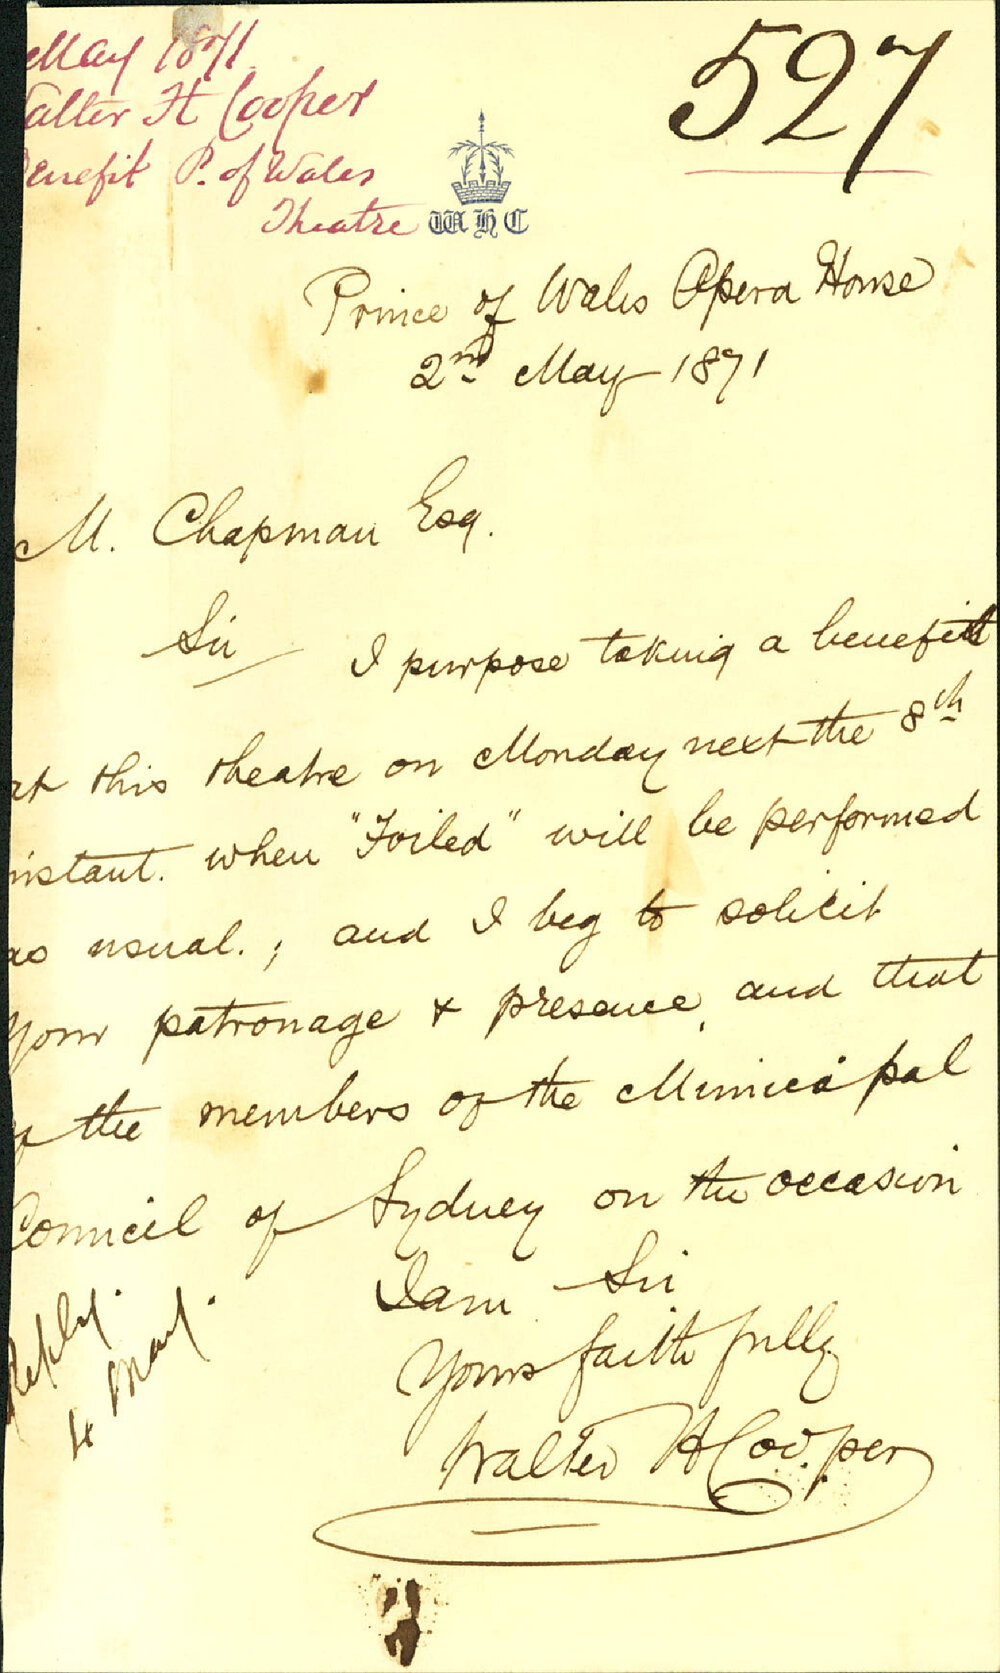 May 1871
Walter H Cooper
Benefit P. of Wales
Theatre
527
W H C
Prince of Wales Opera House
2nd May 1871
M. Chapman Esq.
Sir I purpose taking a benefit
at this theatre on Monday next the 8th
instant. when "Foiled" will be performed
as usual.; and I beg to solicit
your patronage & presence, and that
of the members of the Municipal
Council of Sydney on the occasion
I am Sir
Yours faithfully
Walter H Cooper
Reply.
4 May.